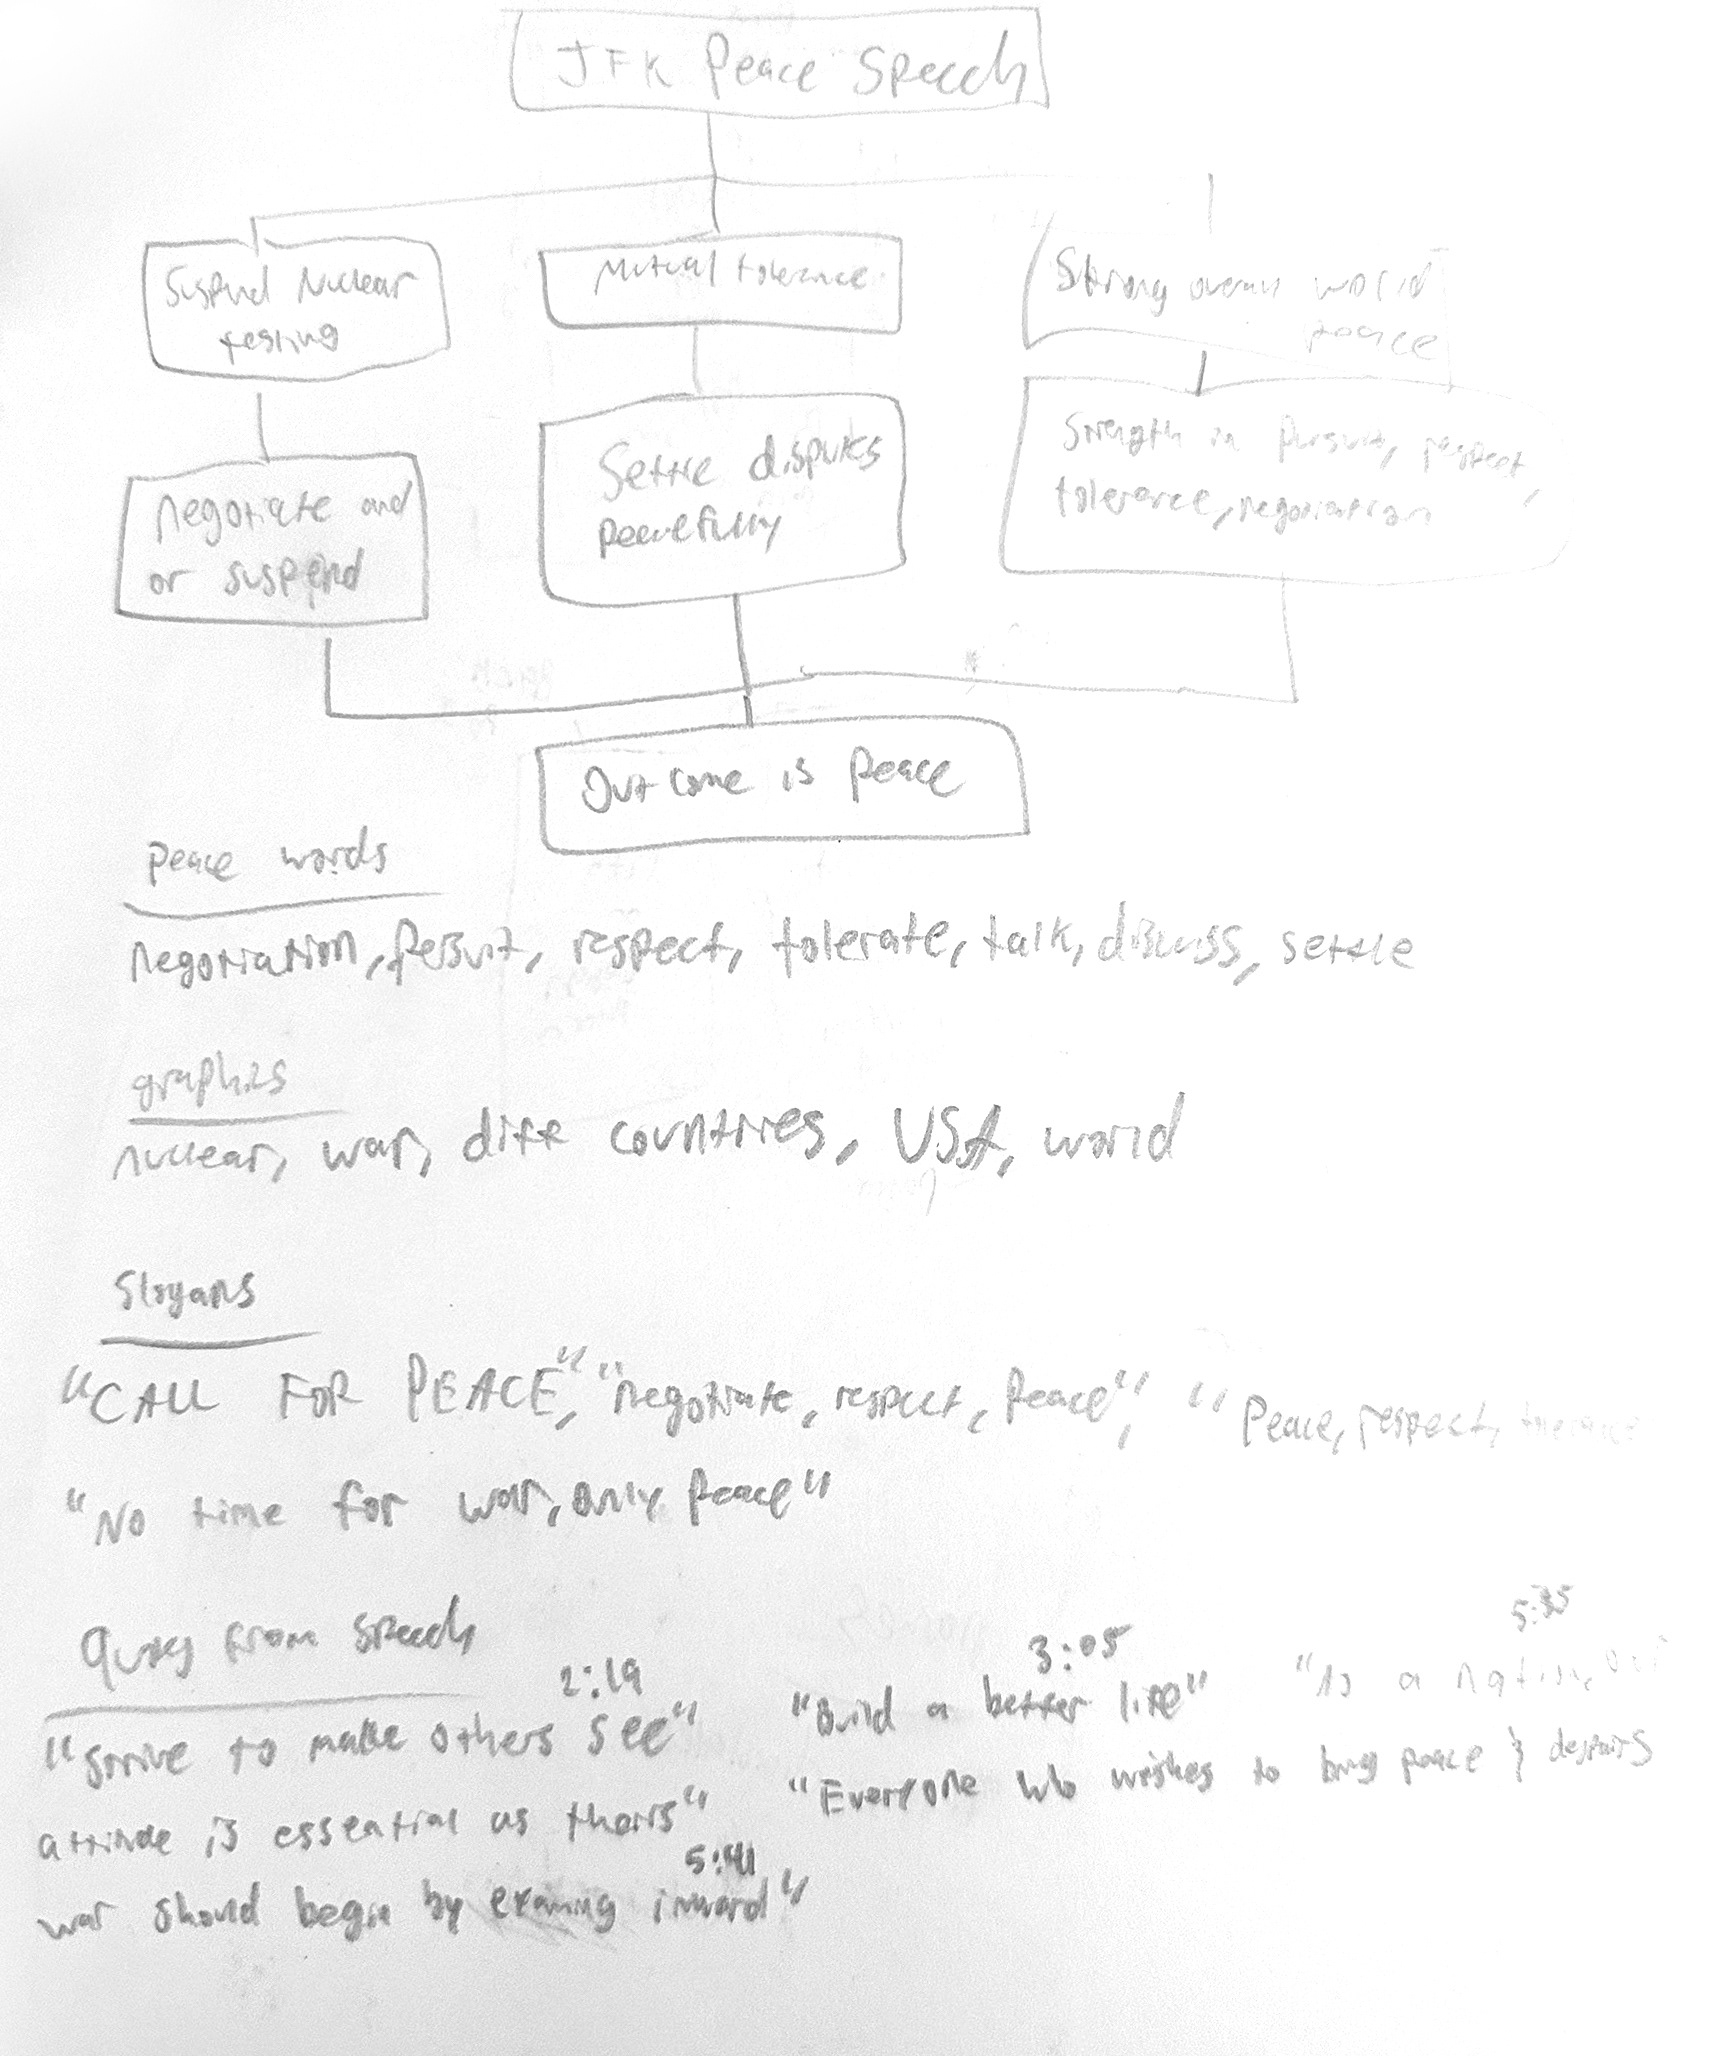 JFK Peace Speech
Suspend Nuclear
testing
Mutual tolerance
Strong overall world
peace
negotiate and
or suspend
Settle disputes
peacefully
Strength in pursuit, respect,
tolerance, negotiation
Outcome is peace
peace words
negotiation, persuit, respect, tolerate, talk, discuss, settle
graphics
nuclear, war, diff countries, USA, world
Slogans
"CALL FOR PEACE," "negotiate, respect, peace", "Peace, respect, tolerance
"No time for war, only peace"
Quotes from speech
2:19
3:05
5:35
"Strive to make others see"
"Build a better life"
"As a nation, our
attitude is essential as theirs"
"Everyone who wishes to bring peace & despairs
5:41
war should begin by examing inward"